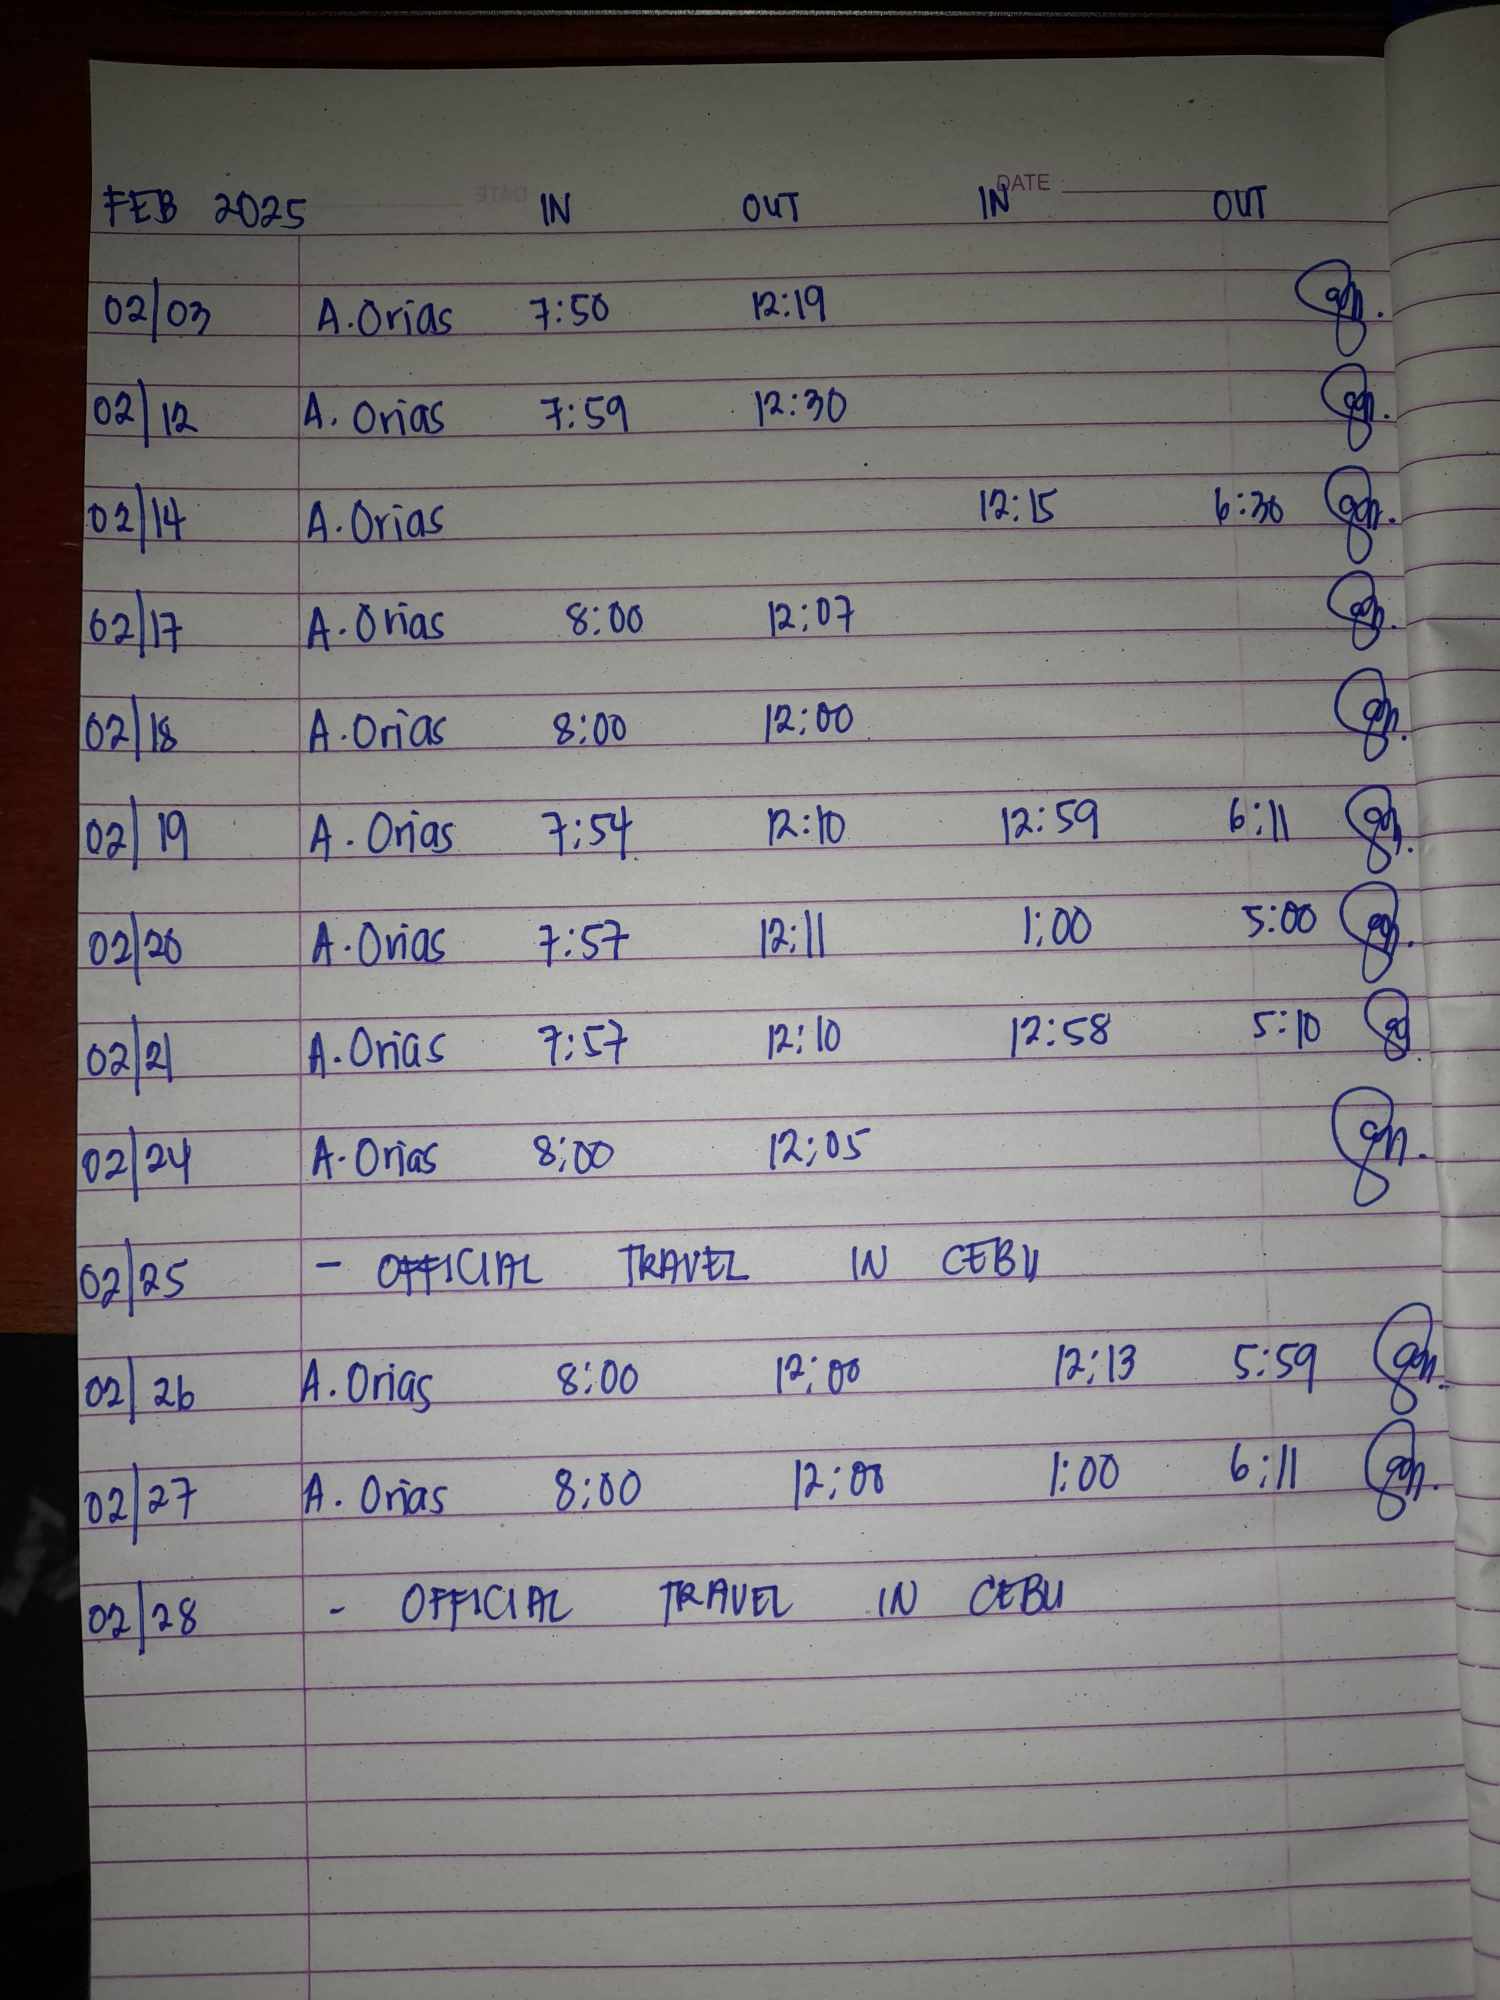 DATE
FEB 2025 IN OUT IN OUT
02/03 A. Orias 7:50 12:19
02/12 A. Orias 7:59 12:30
02/14 A. Orias 12:15 6:30
02/17 A. Orias 8:00 12:07
02/18 A. Orias 8:00 12:00
02/19 A. Orias 7:54 12:10 12:59 6:11
02/20 A. Orias 7:57 12:11 1:00 5:00
02/21 A. Orias 7:57 12:10 12:58 5:10
02/24 A. Orias 8:00 12:05
02/25 - OFFICIAL TRAVEL IN CEBU
02/26 A. Orias 8:00 12:00 12:13 5:59
02/27 A. Orias 8:00 12:00 1:00 6:11
02/28 - OFFICIAL TRAVEL IN CEBU